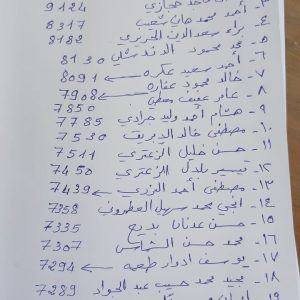 ماجد حجازي 9124
٣- أحمد محمد هاني شعيب 8317
٤- براء سعد الدين الحريري 8182
٥- محمد محمود الدندشلي 8130
٦- أحمد سعيد عكره ← 8091
٧- خالد محمود عفاره ← 7908
٨- عامر عفيف 7850
٩- هشام أحمد وليد جرادي 7785
١٠- مصطفى خالد الديريف 7530
١١- حسن خليل الزعتري 7511
١٢- تيسير بلال الزعتري 7450
١٣- مصطفى أحمد البزري ← 7439
١٤- محمد سهيل العطروني 7358
١٥- حسن عدنان بديع 7335
١٦- محمد حسن الشماس 7307
١٧- يوسف ادوار طعمه ← 7294
١٨- مجيد محمد حبيب عبد الجواد 7289